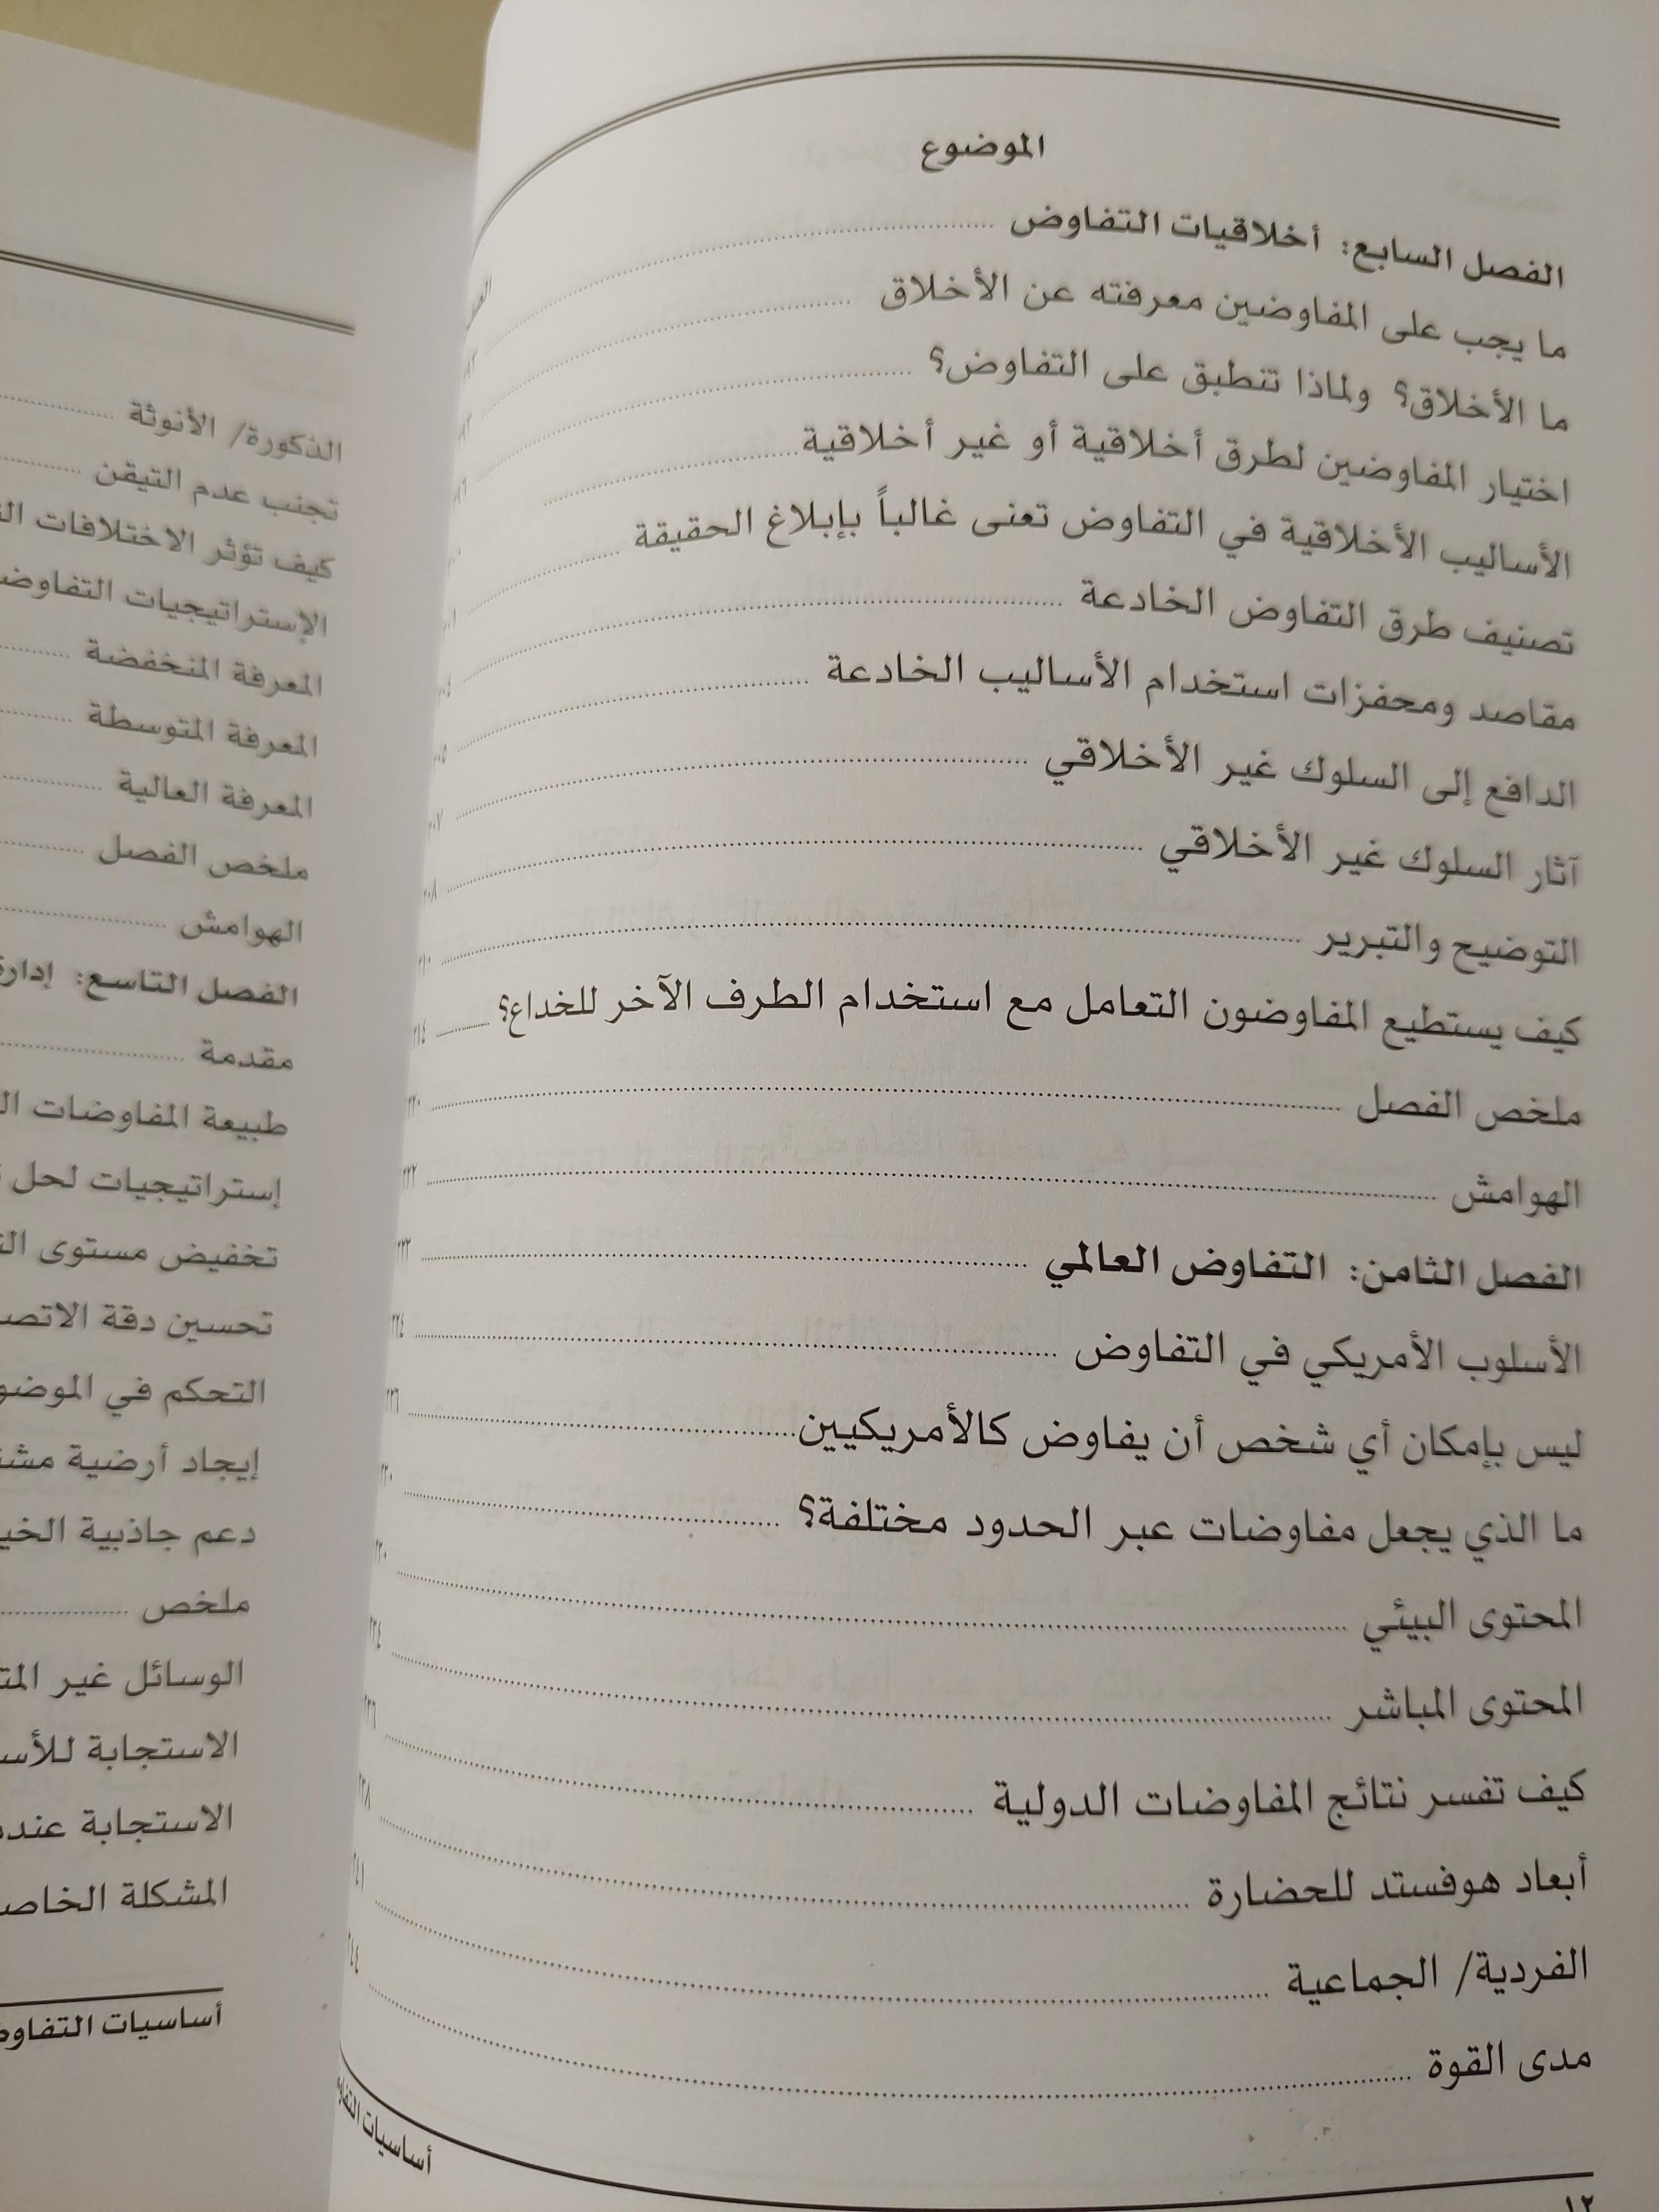 الموضوع
الفصل السابع: أخلاقيات التفاوض
ما يجب على المفاوضين معرفته عن الأخلاق
ما الأخلاق؟ ولماذا تنطبق على التفاوض؟
اختيار المفاوضين لطرق أخلاقية أو غير أخلاقية
الأساليب الأخلاقية في التفاوض تعنى غالباً بإبلاغ الحقيقة
تصنيف طرق التفاوض الخادعة
مقاصد ومحفزات استخدام الأساليب الخادعة
الدافع إلى السلوك غير الأخلاقي
آثار السلوك غير الأخلاقي
التوضيح والتبرير
كيف يستطيع المفاوضون التعامل مع استخدام الطرف الآخر للخداع؟ ٢١٤
ملخص الفصل ٢٢٠
الهوامش ٢٢٢
الفصل الثامن: التفاوض العالمي ٢٢٣
الأسلوب الأمريكي في التفاوض ٢٢٤
ليس بإمكان أي شخص أن يفاوض كالأمريكيين ٢٢٦
ما الذي يجعل مفاوضات عبر الحدود مختلفة؟
المحتوى البيئي
المحتوى المباشر
كيف تفسر نتائج المفاوضات الدولية
أبعاد هوفستد للحضارة
الفردية/ الجماعية
مدى القوة
١٢
أساسيات
الذكورة/ الأنوثة
تجنب عدم التيقن
كيف تؤثر الاختلافات
الإستراتيجيات
المعرفة المنخفضة
المعرفة المتوسطة
المعرفة العالية
ملخص الفصل
الهوامش
الفصل التاسع:
مقدمة
طبيعة المفاوضات
إستراتيجيات لحل
تخفيض مستوى
تحسين دقة
التحكم في
إيجاد أرضية
دعم جاذبية
ملخص
الوسائل غير
الاستجابة
الاستجابة
المشكلة
أساسيات